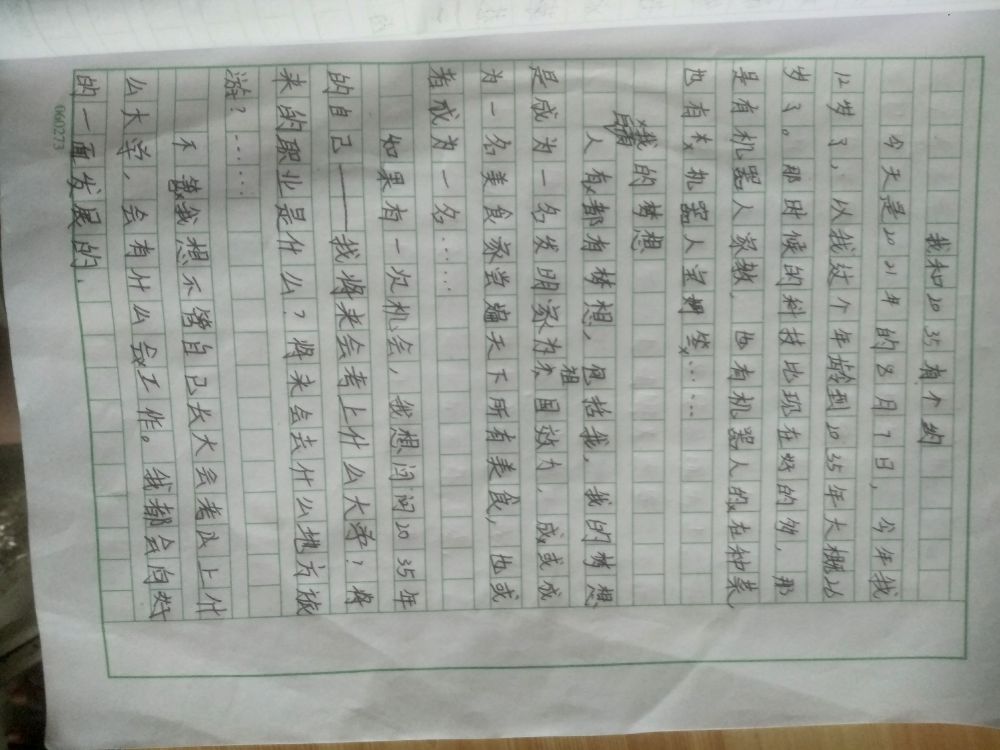 我和2035有个约
今天是2021年的8月7日，今年我
12岁了，以我这个年龄到2035年大概26
岁了。那时候的科技比现在好的多，那
是有机器人家教，也有机器人的在种菜，
也有机器人宝……
我的梦想
人都有梦想，包括我，我的梦想
是成为一名发明家为祖国效力，或成
为一名美食家尝遍天下所有美食，也或
者成为一名……
如果有一次机会，我想问问2035年
的自己——我将来会考上什么大学？将
来的职业是什么？将来会去什么地方旅
游？……
不我想不管自己长大会考上什
么大学，会有什么工作。我都会向好
的一面发展的.
060273